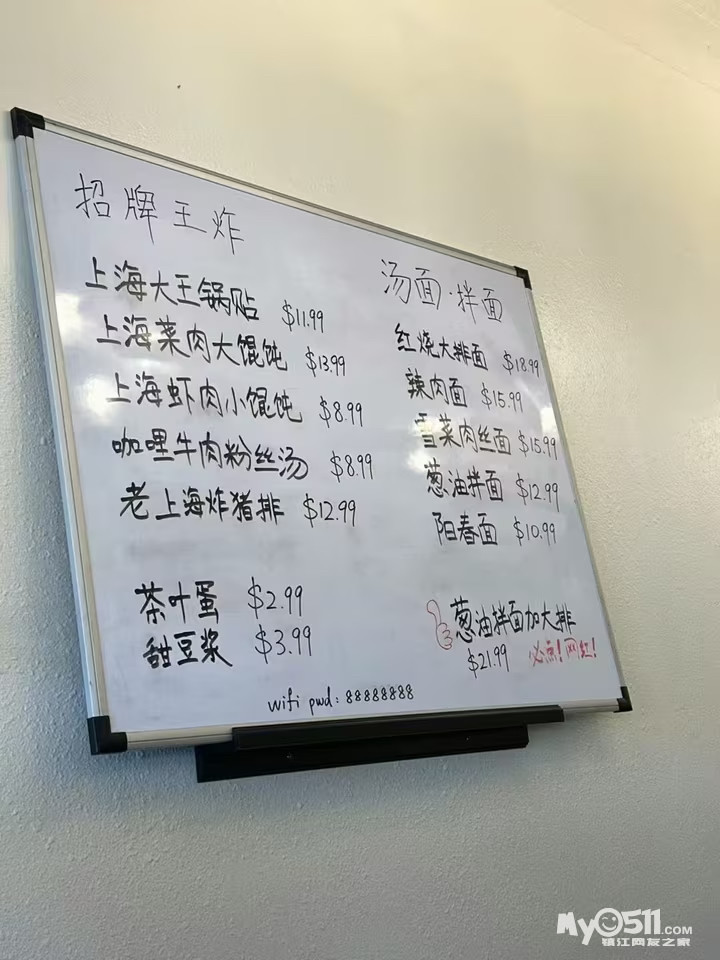 招牌王炸
上海大王锅贴 $11.99
上海菜肉大馄饨 $13.99
上海虾肉小馄饨 $8.99
咖哩牛肉粉丝汤 $8.99
老上海炸猪排 $12.99
茶叶蛋 $2.99
甜豆浆 $3.99
汤面·拌面
红烧大排面 $18.99
辣肉面 $15.99
雪菜肉丝面 $15.99
葱油拌面 $12.99
阳春面 $10.99
葱油拌面加大排
$21.99 必点!网红!
wifi pwd: 88888888
MY0511.COM
镇江网友之家